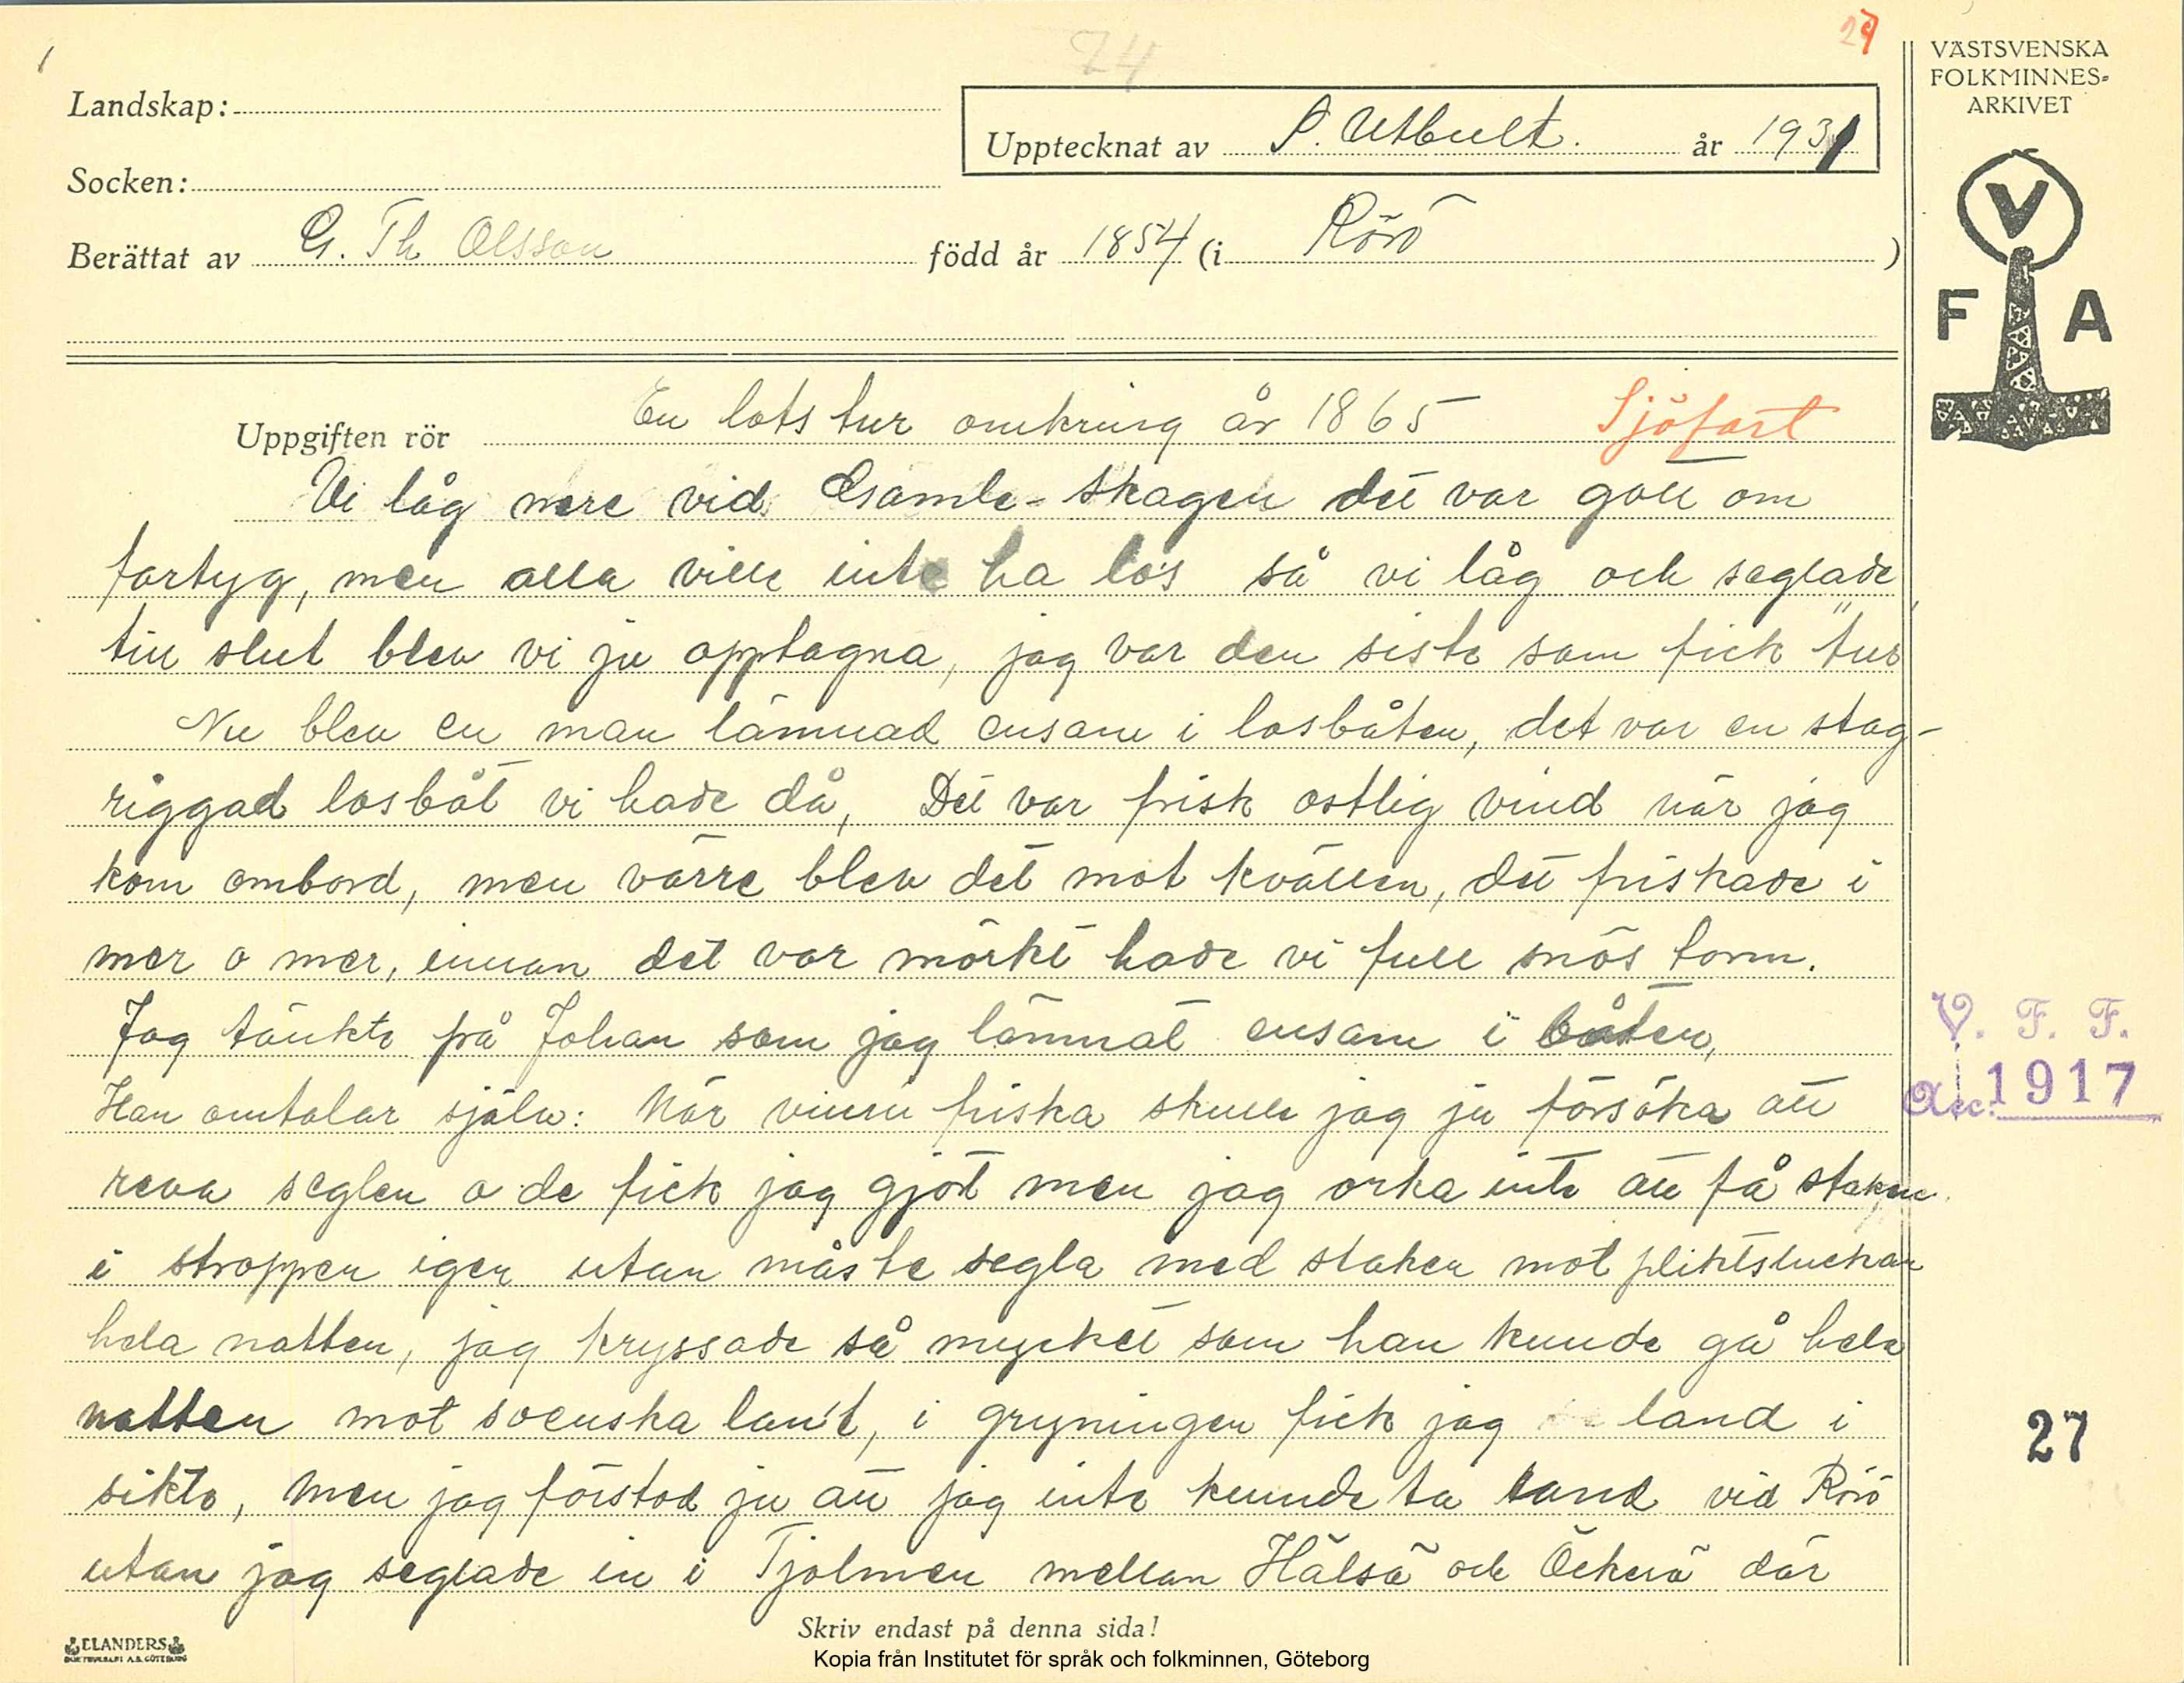 24
29
VÄSTSVENSKA
FOLKMINNES-
ARKIVET
Landskap:
Upptecknat av P. Utbult. år 1931
Socken:
Berättat av G. Th Olsson född år 1854 (i Rörö )
V
F A
Uppgiften rör En lots tur omkring år 1865 Sjöfart
Vi låg nere vid Gamle-Skagen det var gott om
fartyg, men alla ville inte ha los så vi låg och seglade
till slut blev vi ju opptagna, jag var den siste som fick "tur"
Nu blev en man lämnad ensam i losbåten, det var en stag-
riggad losbåt vi hade då, Det var frisk ostlig vind när jag
kom ombord, men värre blev det mot kvällen, det friskade i
mer o mer, innan det var mörkt hade vi full snös torm.
Jag tänkte på Johan som jag lämnat ensam i båten,
Han omtalar själv: När vinn friska skulle jag ju försöka att
reva seglen o de fick jag gjot men jag orka inte att få staken
i stroppen igen utan måste segla med staken mot pliktsluckan
hela natten, jag kryssade så mycket som han kunde gå hela
natten mot svenska lan't, i gryningen fick jag land i
sikte, men jag förstod ju att jag inte kunde ta land vid Rörö
utan jag seglade in i Tjolmen mellan Hälsö och Öckerö där
V. F. F.
Acc. 1917
27
Skriv endast på denna sida!
ELANDERS
BOKTRYCKERI A.B. GÖTEBORG
Kopia från Institutet för språk och folkminnen, Göteborg